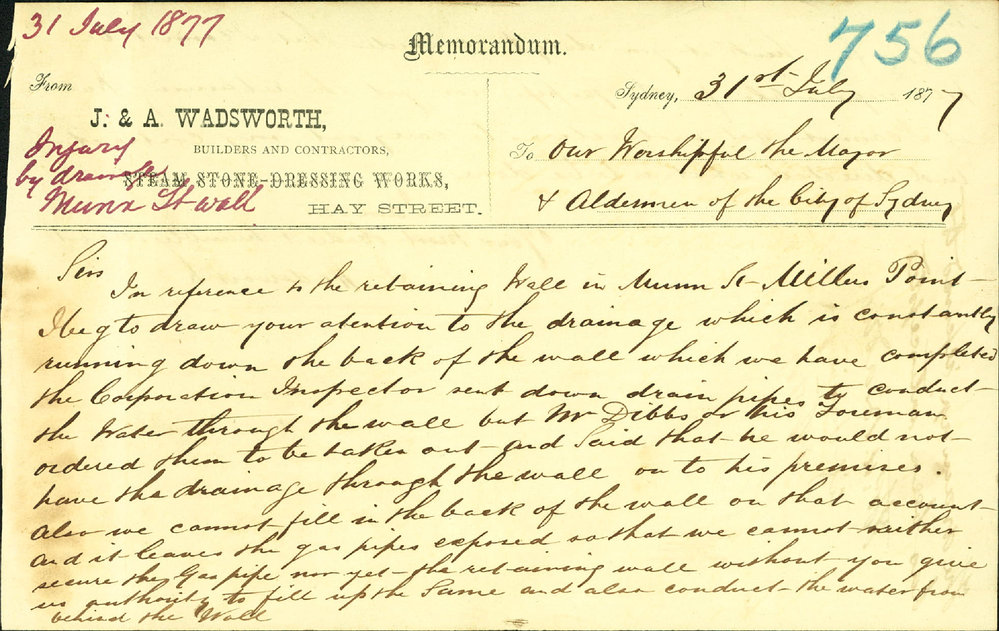 31 July 1877
Memorandum.
756
From
J. & A. WADSWORTH,
BUILDERS AND CONTRACTORS,
STEAM STONE-DRESSING WORKS,
HAY STREET.
Injury
by drainage
Munn St wall
Sydney, 31st July 1877
To Our Worshipful the Mayor
& Aldermen of the City of Sydney
Sirs
In reference to the retaining Wall in Munn St Millers Point
I beg to draw your atention to the drainage which is constantly
running down the back of the wall which we have completed
the Corporation Inspector sent down drain pipes to conduct
the Water through the wall but Mr Dibbs or his Foreman
ordered them to be taken out and Said that he would not
have the drainage through the wall on to his premises.
Also we cannot fill in the back of the wall on that account
and it leaves the gas pipes exposed so that we cannot neither
secure the Gas pipe nor yet the retaining wall without you give
us authority to fill up the Same and also conduct the water from
behind the Wall